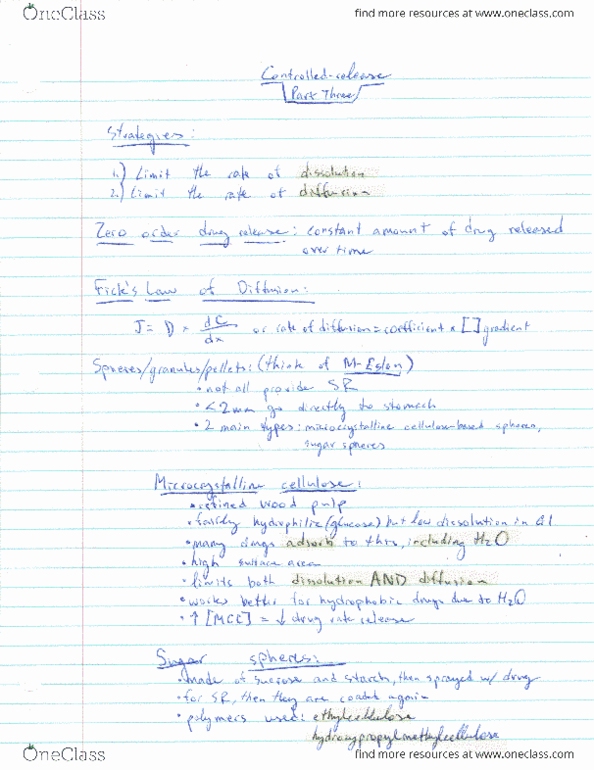 OneClass
find more resources at www.oneclass.com
Controlled-release
Part Three
Strategies:
1.) Limit the rate of dissolution
2.) Limit the rate of diffusion
Zero order drug release: constant amount of drug released
over time
Fick's Law of Diffusion:
J = D × dC/dx or rate of diffusion = coefficient × [ ] gradient
Spheres/granules/pellets: (think of M-Eslon)
• not all provide SR
• <2mm go directly to stomach
• 2 main types: microcrystalline cellulose-based spheres,
sugar spheres
Microcrystalline cellulose:
• refined wood pulp
• fairly hydrophilic (glucose) but low dissolution in GI
• many drugs adsorb to this, including H2O
• high surface area
• limits both dissolution AND diffusion
• works better for hydrophobic drugs due to H2O
• ↑ [MCC] = ↓ drug rate release
Sugar spheres:
• made of sucrose and starch, then sprayed w/ drug
• for SR, then they are coated again
• polymers used: ethylcellulose
hydroxypropylmethylcellulose
OneClass
find more resources at www.oneclass.com